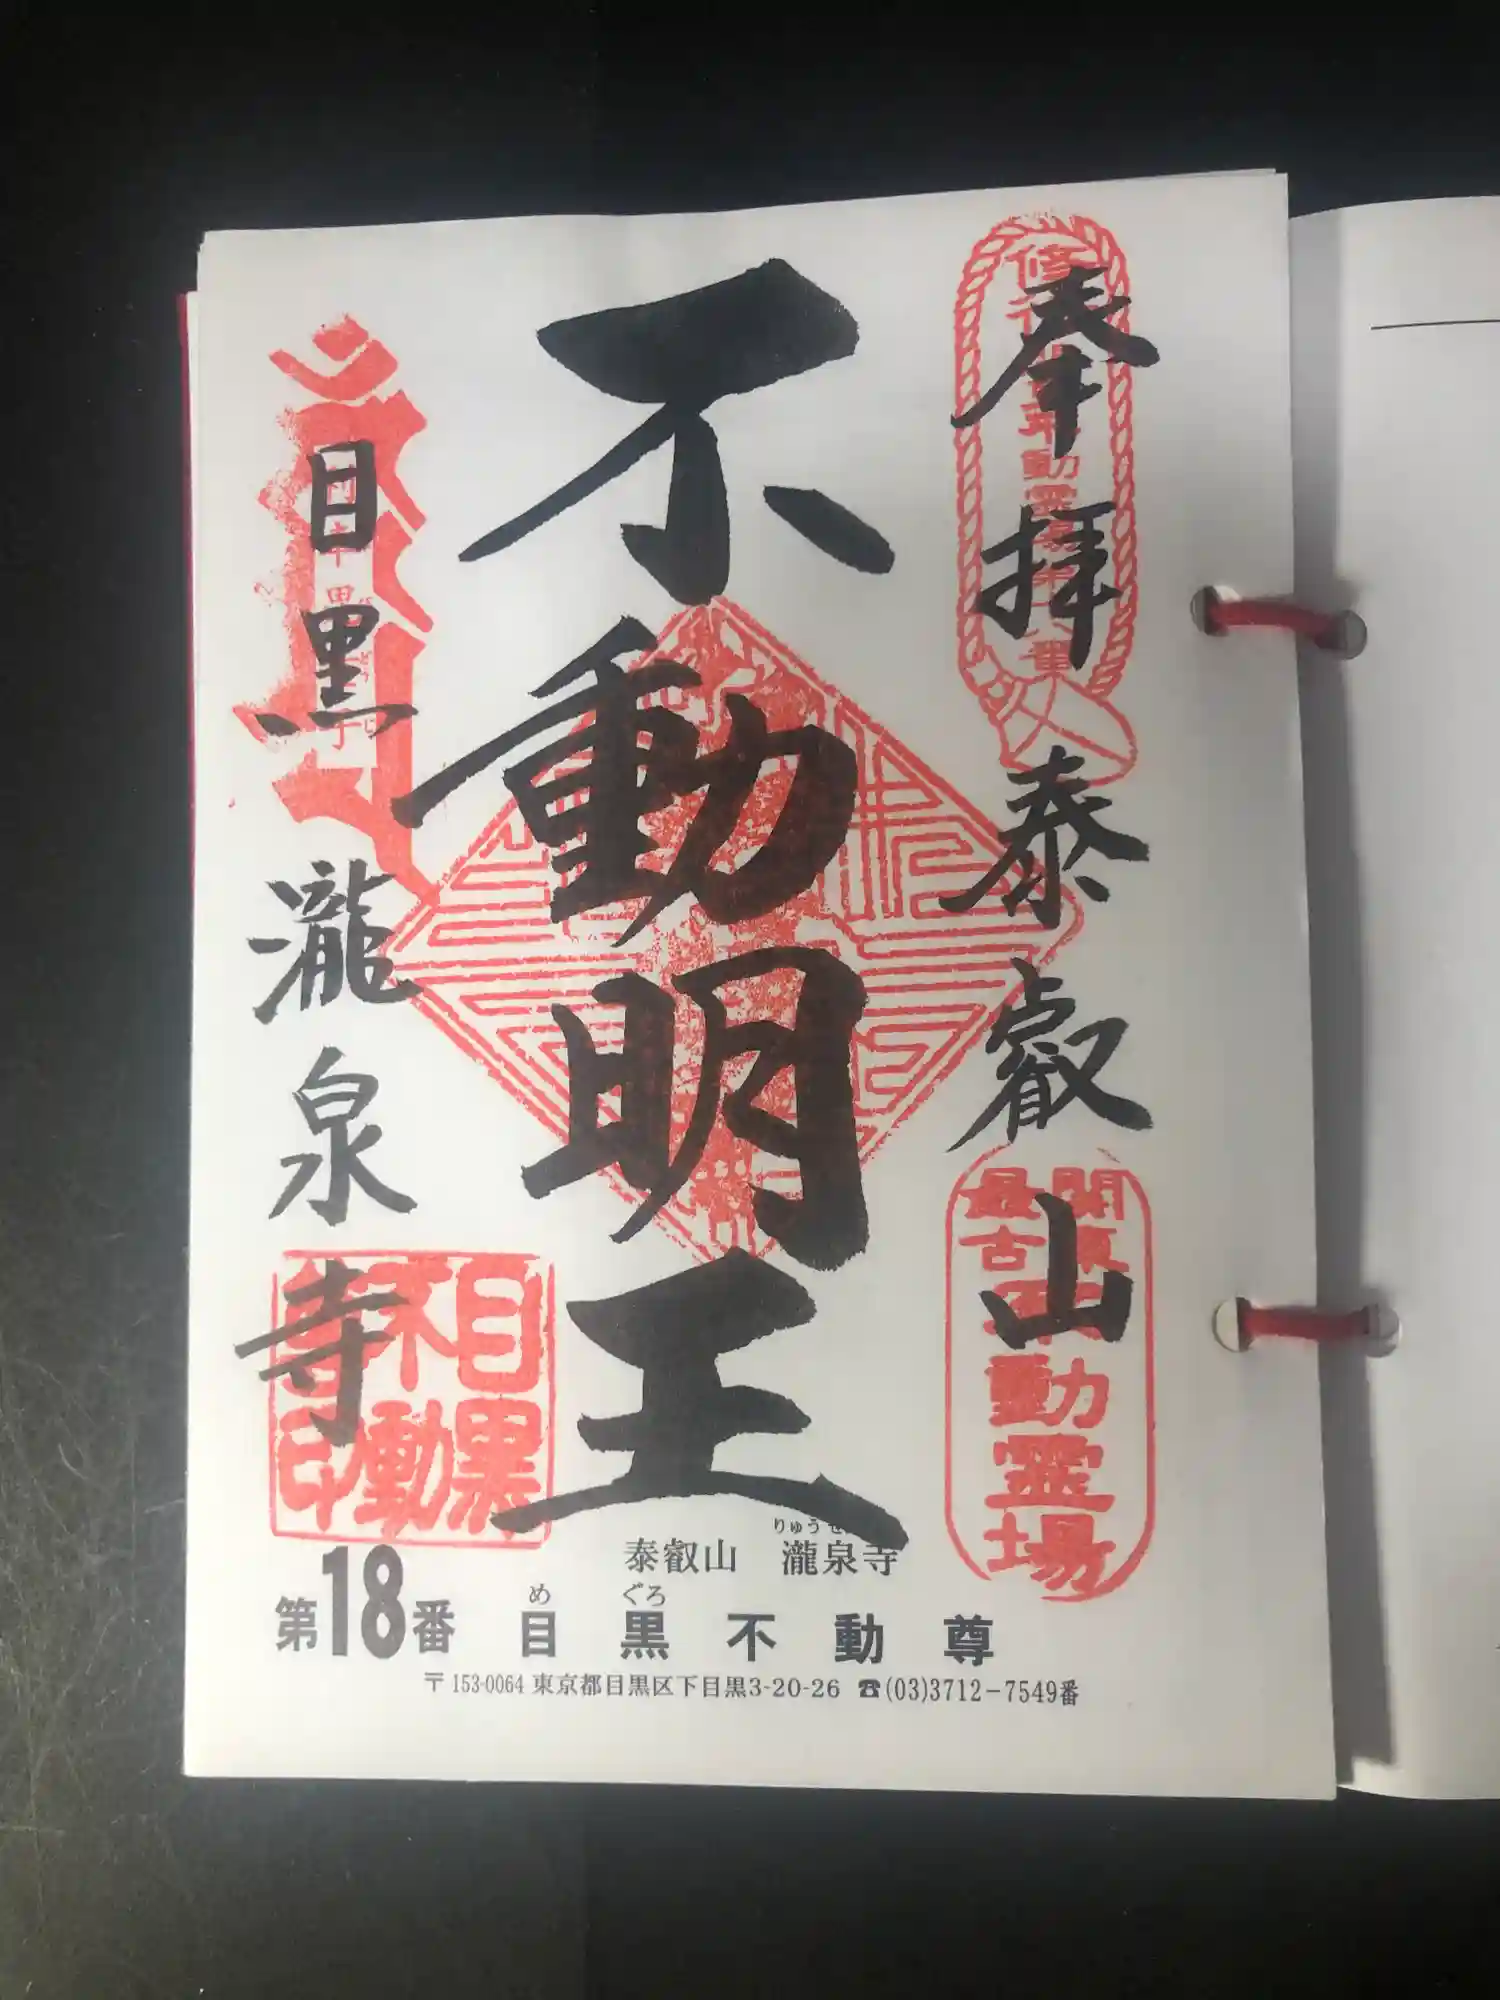 奉拝 泰叡山
不動明王
目黒 瀧泉寺
関東
最古
不動霊場
目黒
不動
尊印
泰叡山 瀧泉寺
第18番 目黒不動尊
め ぐろ
〒153-0064 東京都目黒区下目黒3-20-26 ☎(03)3712-7549番